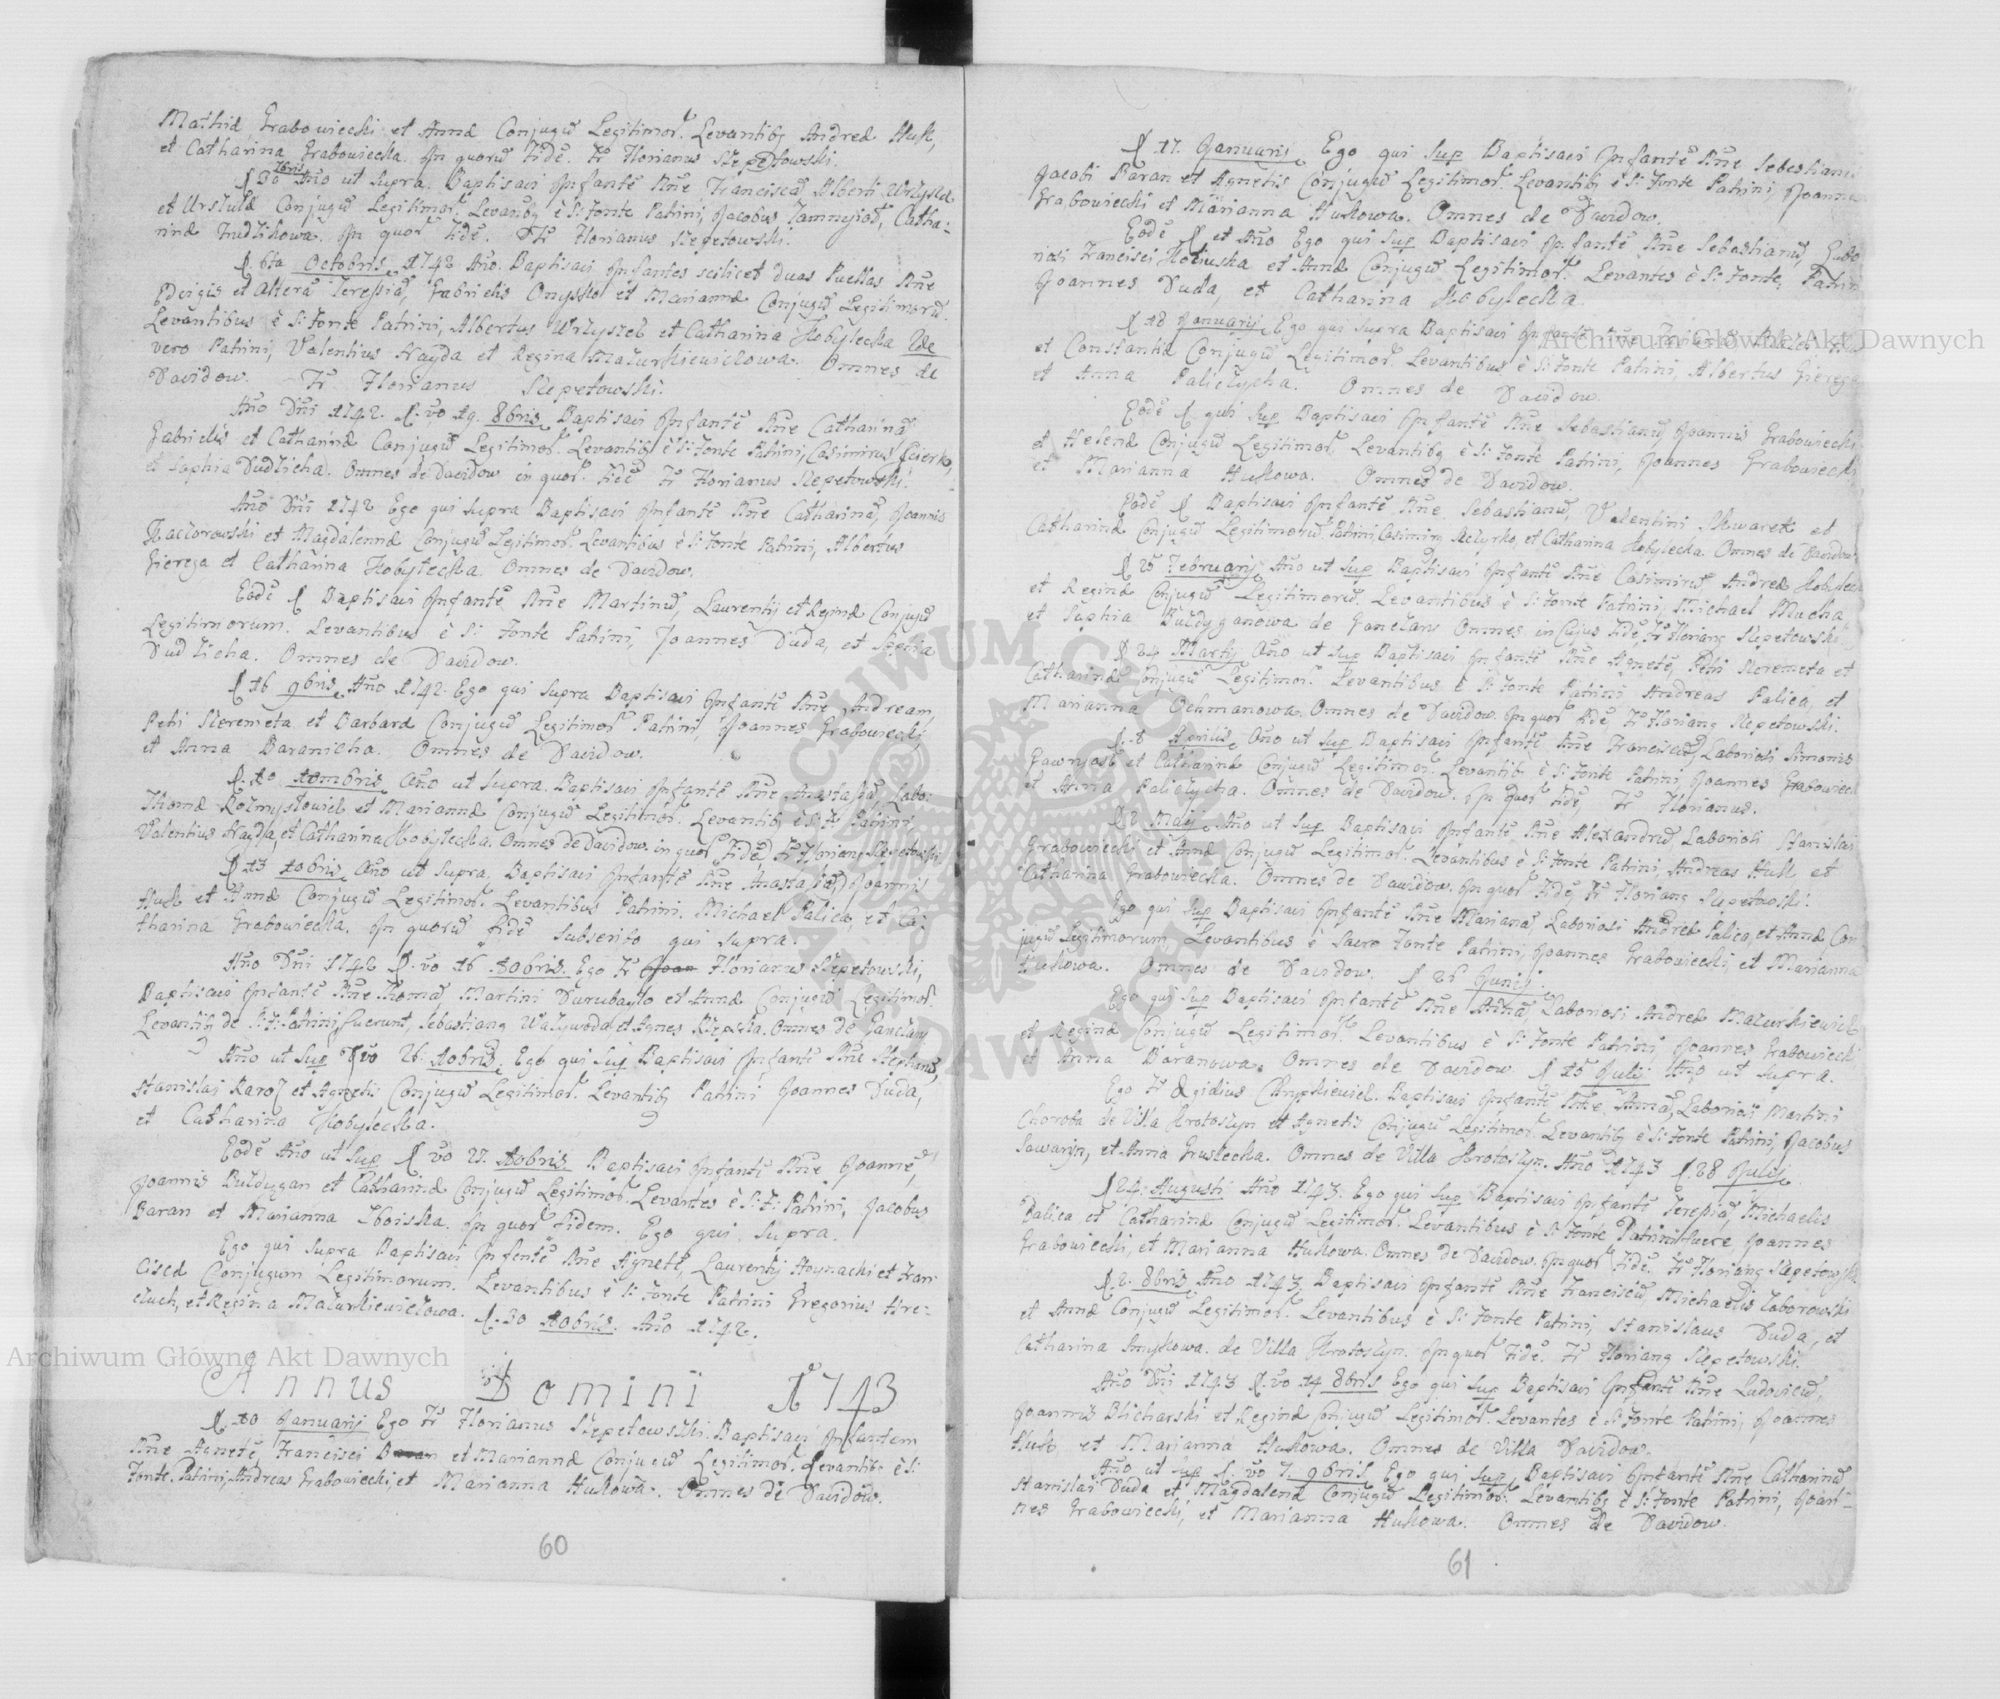 Mathiæ Grabowiecki et Annæ Conjugũ Legitimor. Levantibq Andreæ Huk,
et Catharina Grabowiecka. In quorũ fidẽ. Fr Florianus Szepetowski.
D 30 7bris Año ut supra. Baptisavi Infantẽ Nñe Franciscã Alberti
et Ursulæ Conjugũ Legitimor. Levañbq è S: Fonte Patrini, Jacobus Catha-
rina Dudzikowa. In quor fidẽ. Fr Florianus Szepetowski.
D 6ta Octobris 1742 Año. Baptisavi Infantes scilicet duas Puellas Nñe
Edvigis et Altera Teressiã, Gabrielis Onyszko et Mariannæ Conjugũ Legitimorũ.
Levantibus è S: Fonte Patrini, Albertus et Catharina Kobylecka 2dæ
vero Patrini, Valentius Hayda et Regina Mazurkiewiczowa. Omnes de
Davidow. Fr Florianus Szepetowski.
Año Dñi 1742. D. vo 19. 8bris Baptisavi Infantẽ Nñe Catharinã
Gabrielis et Catharinæ Conjugũ Legitimor. Levantibq è S: Fonte Patrini, Casimirus
et Sophia Dudzicha. Omnes de Davidow in quor. fidẽ Fr Florianus Szepetowski.
Año Dñi 1742 Ego qui supra Baptisavi Infantẽ Nñe Catharinã, Joannis
Kaczorowski et Magdalennæ Conjugũ Legitimor. Levantibus è S: Fonte Patrini, Albertus
Gierega et Catharina Kobylecka. Omnes de Davidow.
Eodẽ D Baptisavi Infantẽ Nñe Martinũ, Laurentij et Reginæ Conjugũ
Legitimorum. Levantibus è S: Fonte Patrini, Joannes Duda, et Sophia
Dudzicha. Omnes de Davidow.
D 16 9bris Año 1742. Ego qui supra Baptisavi Infantẽ Nñe Andream,
Petri Szeremeta et Barbaræ Conjugũ Legitimor Patrini, Joannes Grabowiecki,
et Anna Baranicha. Omnes de Davidow.
D. 10 10mbris Año ut supra. Baptisavi Infantẽ Nñe Anastasiã, Labo:
Thomæ Rozmysłowicz et Mariannæ Conjugũ Legitimor. Levantibq è S: F: Patrini
Valentius Hayda, et Catharina Kobylecka. Omnes de Davidow. in quor fidẽ, Fr Florianq Szepetowski.
D 13 10bris Año ut supra. Baptisavi Infantẽ Nñe Anastasiã, Joannis
Huk et Annæ Conjugũ Legitimor. Levantibus Patrini. Michael Palica, et Ca:
tharina Grabowiecka. In quorũ fidẽ subscribo qui supra.
Año Dñi 1742 D. vo 16 10bris. Ego Fr Joan Florianus Szepetowski,
Baptisavi Infantẽ Nñe Thomã, Martini et Annæ Conjugũ Legitimor.
Levantibq de S: F: Patrini, fuerunt, Sebastianq et Agnes. Omnes de Ganczary
Año ut Sup D vo 26. 10bris, Ego qui Sup Baptisavi Infantẽ Nñe Stephanũ,
Stanislai Karol et Agnetis Conjugũ Legitimor. Levantibq Patrini Joannes Duda,
et Catharina Kobylecka.
Eodẽ Año ut Sup D vo 27. 10bris Baptisavi Infantẽ Nñe Joannẽ,
Joannis Buldygan et Catharinæ Conjugũ Legitimor. Levantes è S: F: Patrini, Jacobus
Baran et Marianna Zboiska. In quor fidem. Ego qui supra.
Ego qui supra Baptisavi Infantẽ Nñe Agnetẽ, Laurentij Hoynacki et Fran
ciscæ Conjugum Legitimorum. Levantibus è S: Fonte Patrini Gregorius Hre-
czuch, et Regina Mazurkiewiczowa. D. 30 10bris. Año 1742.
Annus Domini 1743
D. 10 Januarij Ego Fr Florianus Szepetowski. Baptisavi Infantem
Nñe Agnetẽ, Francisci Baran et Mariannæ Conjugũ Legitimor. Levantibq è S:
Fonte. Patrini, Andreas Grabowiecki, et Marianna Hukowa. Omnes de Davidow.
60
D 17. Januarij Ego qui Sup Baptisavi Infantẽ Nñe Sebastianũ
Jacobi Baran et Agnetis Conjugũ Legitimor. Levantibq è S: Fonte Patrini, Joannes
Grabowiecki et Marianna Hukowa. Omnes de Davidow.
Eodẽ D et Año Ego qui Sup Baptisavi Infantẽ Nñe Sebastianũ, Labo
riosi Francisci et Annæ Conjugũ Legitimor. Levantes è S: Fonte, Patrin
Joannes Duda, et Catharina Kobylecka.
D 18 Januarij Ego qui supra Baptisavi Infantẽ Nñe
et Constantiæ Conjugũ Legitimor. Levantibus è S: Fonte Patrini, Albertus Gierega
et Anna Paliczycha. Omnes de Davidow.
Eodẽ D qui Sup Baptisavi Infantẽ Nñe Sebastianũ Joannis Grabowiecki
et Helenæ Conjugũ Legitimor. Levantibq è S: Fonte Patrini, Joannes Grabowiecki
et Marianna Hukowa. Omnes de Davidow.
Eodẽ D Baptisavi Infantẽ Nñe Sebastianũ, Valentini Skwarek et
Catharinæ Conjugũ Legitimorũ. Patrini, Casimirus et Catharina Kobylecka. Omnes de Davidow.
D 25 Februarij Año ut Sup Baptisavi Infantẽ Nñe Casimirũ, Andreæ Kobyleck
et Reginæ Conjugũ Legitimorũ. Levantibus è S: Fonte Patrini, Michael Macha
et Sophia Buldyganowa de Ganczary Omnes in cujus fidẽ, Fr Florianq Szepetowski
D 24 Martij Año ut Sup Baptisavi Infantẽ Nñe Agnetẽ, Petri Szeremeta et
Catharinæ Conjugũ Legitimor. Levantibus è S: Fonte Patrini Andreas Palica, et
Marianna Ochmanowa. Omnes de Davidow. In quor fidẽ Fr Florianq Szepetowski.
D. 8 Aprilis Año ut Sup Baptisavi Infantẽ Nñe Franciscũ, Laboriosi Simonis
et Catharinæ Conjugũ Legitimor. Levantibq è S: Fonte Patrini Joannes Grabowiecki
et Anna Paliczycha. Omnes de Davidow. In quor fidẽ, Fr Florianus.
D 2 Maij Año ut Sup Baptisavi Infantẽ Nñe Alexandrũ, Laboriosi Stanislai
Grabowiecki et Annæ Conjugũ Legitimor. Levantibus è S: Fonte Patrini, Andreas Huk et
Catharina Grabowiecka. Omnes de Davidow. In quor fidẽ Fr Florianq Szepetowski.
Ego qui Sup Baptisavi Infantẽ Nñe Mariannã, Laboriosi Andreæ Palica, et Annæ Con-
jugũ Legitimorum, Levantibus è Sacro Fonte Patrini, Joannes Grabowiecki, et Marianna
Hukowa. Omnes de Davidow. D 26 Junij.
Ego qui Sup Baptisavi Infantẽ Nñe Annã, Laboriosi Andreæ Mazurkiewicz
et Reginæ Conjugũ Legitimor. Levantibus è S: Fonte Patrini, Joannes Grabowiecki,
et Anna Baranowa. Omnes de Davidow. D 15 Julij Año ut supra.
Ego Fr Ægidius Baptisavi Infantẽ Nñe Annã, Laboriosi Martini
Choroba de Villa Krotoszyn et Agnetis Conjugũ Legitimor. Levantibq è S: Fonte Patrini, Jacobus
Sawaryn, et Anna. Omnes de Villa Krotoszyn. Año 1743 D. 28 Julij.
D 24. Augusti Año 1743. Ego qui Sup Baptisavi Infantẽ Teressiã, Michaelis
Palica et Catharinæ Conjugũ Legitimor. Levantibus è S: Fonte Patrini fuere, Joannes
Grabowiecki, et Marianna Hukowa. Omnes de Davidow. In quor fidẽ. Fr Florianq Szepetowski
D 2. 8bris Año 1743 Baptisavi Infantẽ Nñe Franciscũ, Michaelis Zaborowski
et Annæ Conjugũ Legitimor. Levantibus è S: Fonte Patrini, Stanislaus Duda, et
Catharina de Villa Krotoszyn. In quor fidẽ. Fr Florianq Szepetowski.
Año Dñi 1743 D. vo 14 8bris Ego qui Sup Baptisavi Infantẽ Nñe Ludovicũ,
Joannis Blicharski et Reginæ Conjugũ Legitimor. Levantes è S: Fonte Patrini, Joannes
Huk, et Marianna Hukowa. Omnes de Villa Davidow.
Año ut Sup D. vo 7 9bris Ego qui Sup Baptisavi Infantẽ Nñe Catharinã
Stanislai Duda et Magdalenæ Conjugũ Legitimor. Levantibq è S: Fonte Patrini, Joan-
nes Grabowiecki, et Marianna Hukowa. Omnes de Davidow.
61
Archiwum Główne Akt Dawnych
Archiwum Główne Akt Dawnych
ARCHIWUM GŁÓWNE AKT DAWNYCH